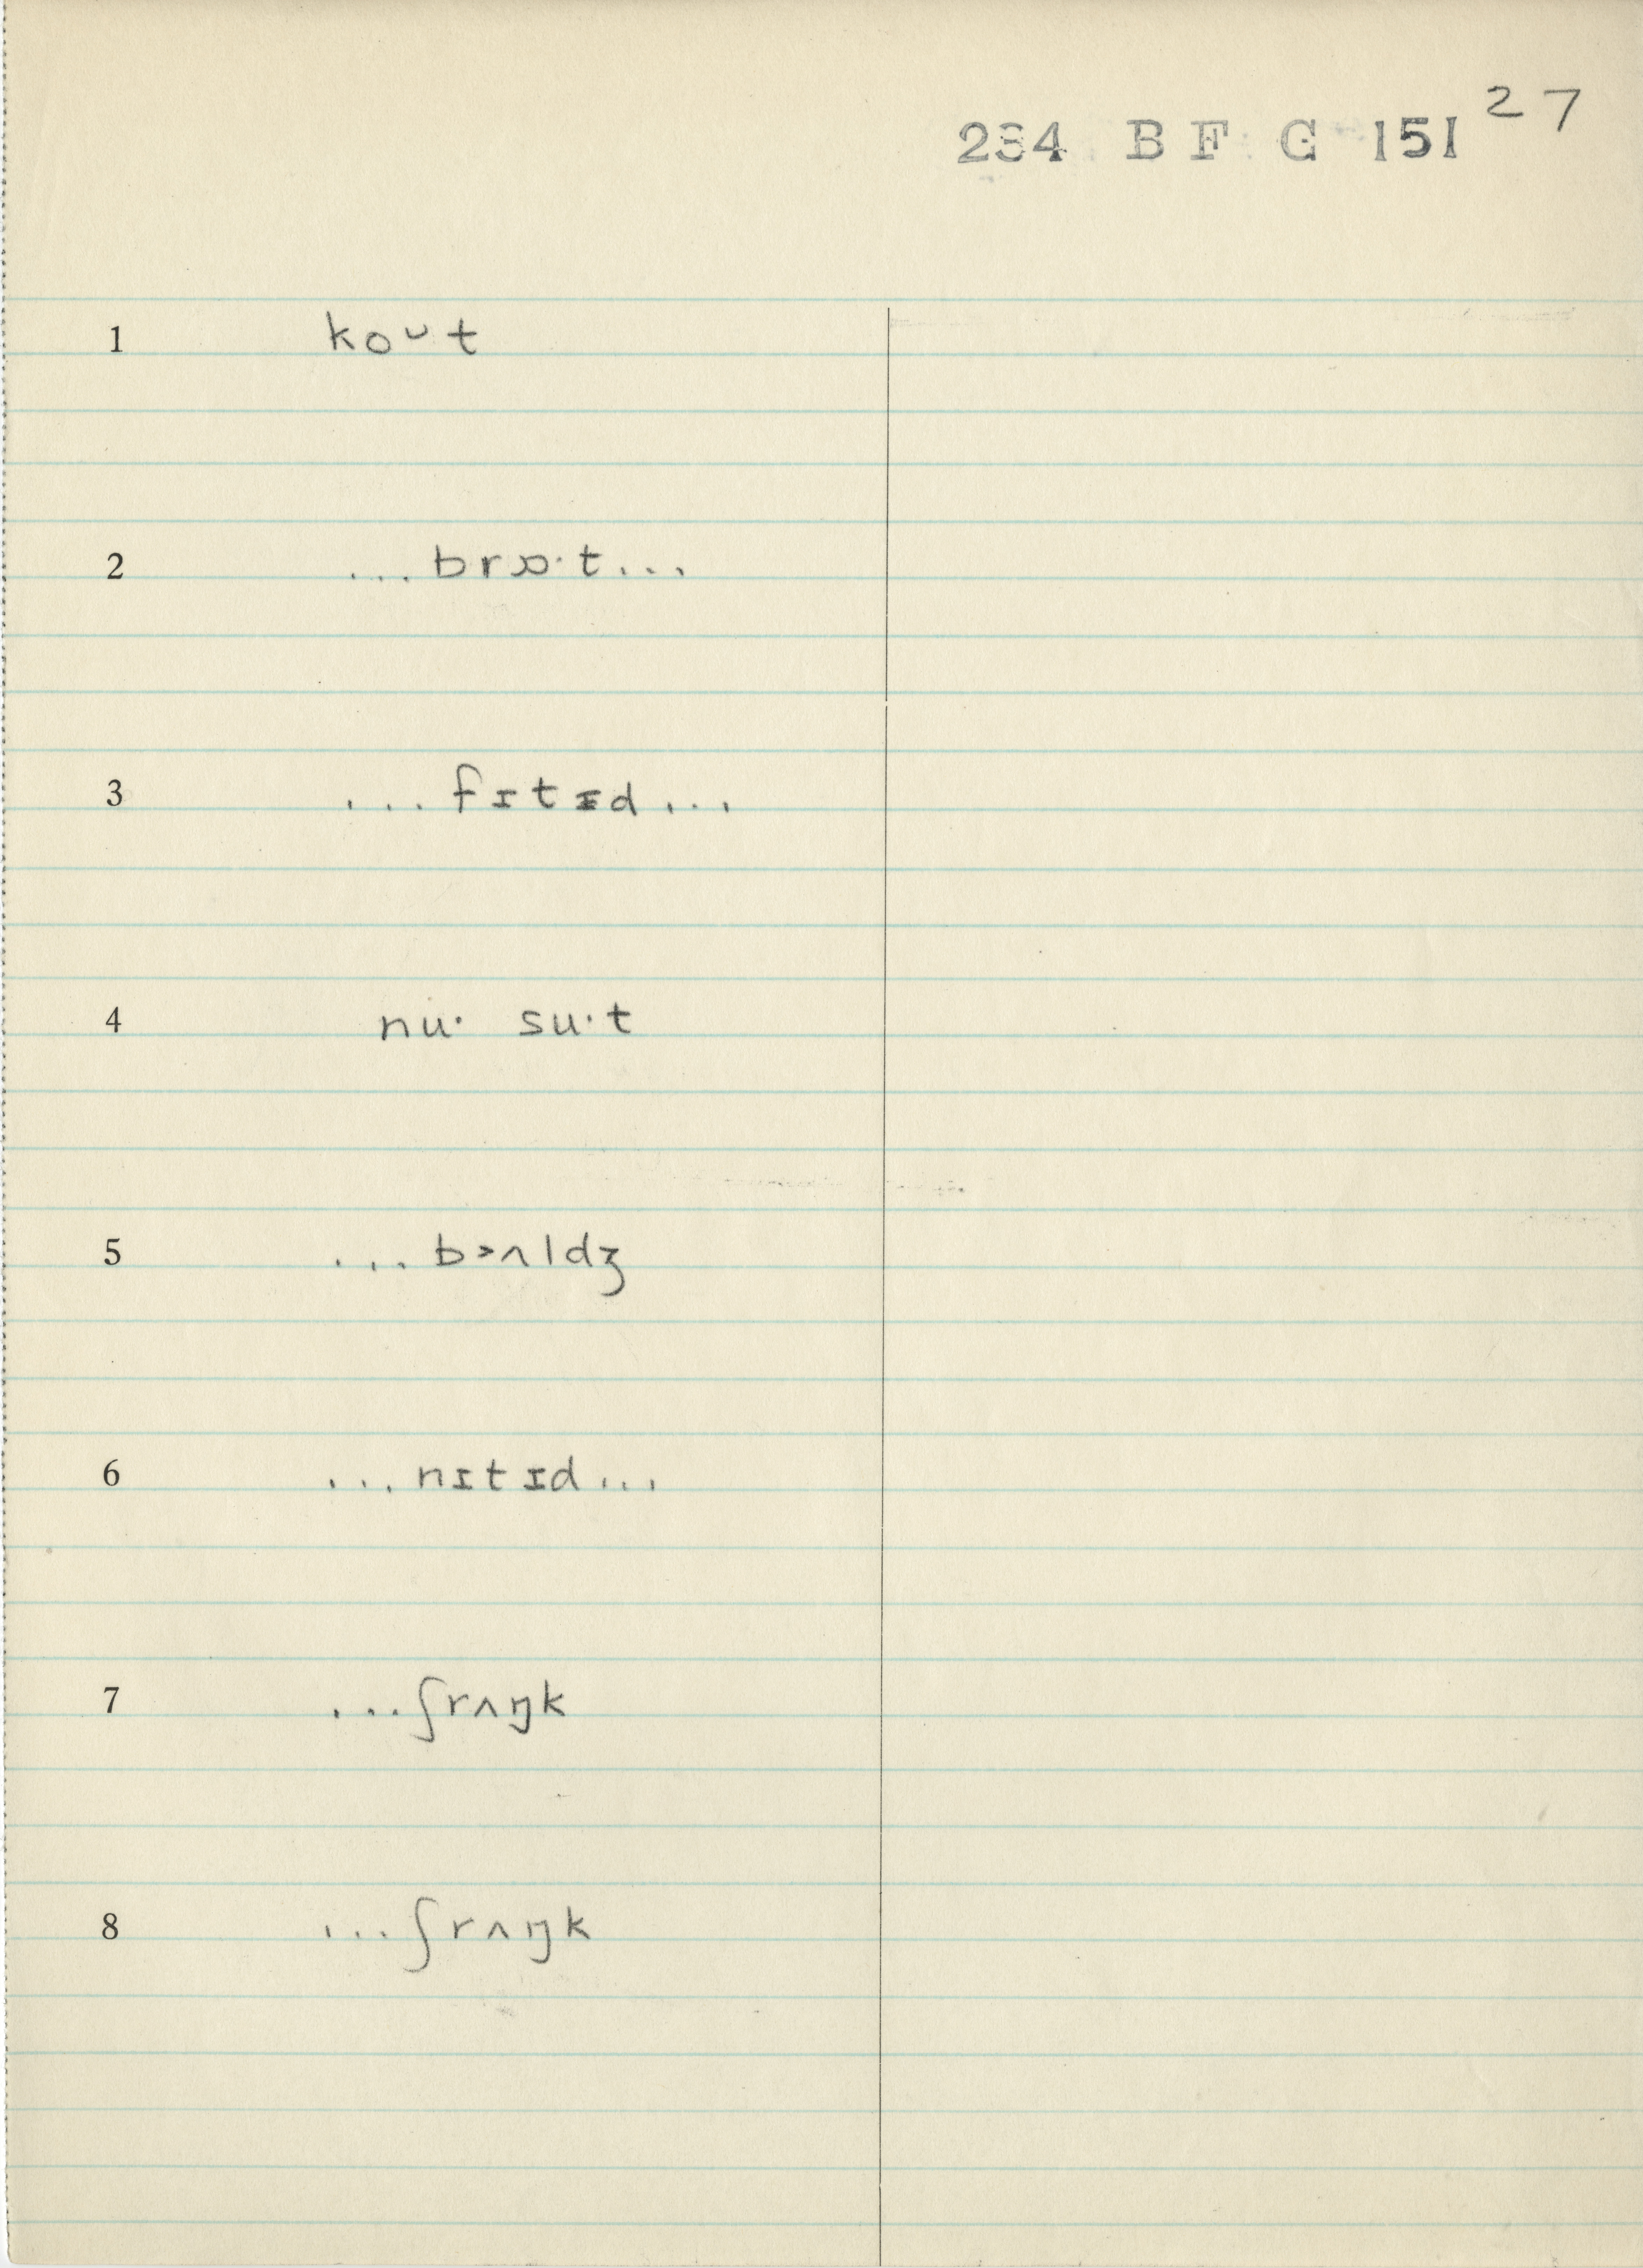 27
234 B F G 151
1 koᴗt
2 ...brɒ·t...
3 ...fɪtɪd...
4 nu· su·t
5 ...bɔʌldʒ
6 ...nɪtɪd...
7 ...ʃrʌŋk
8 ...ʃrʌŋk